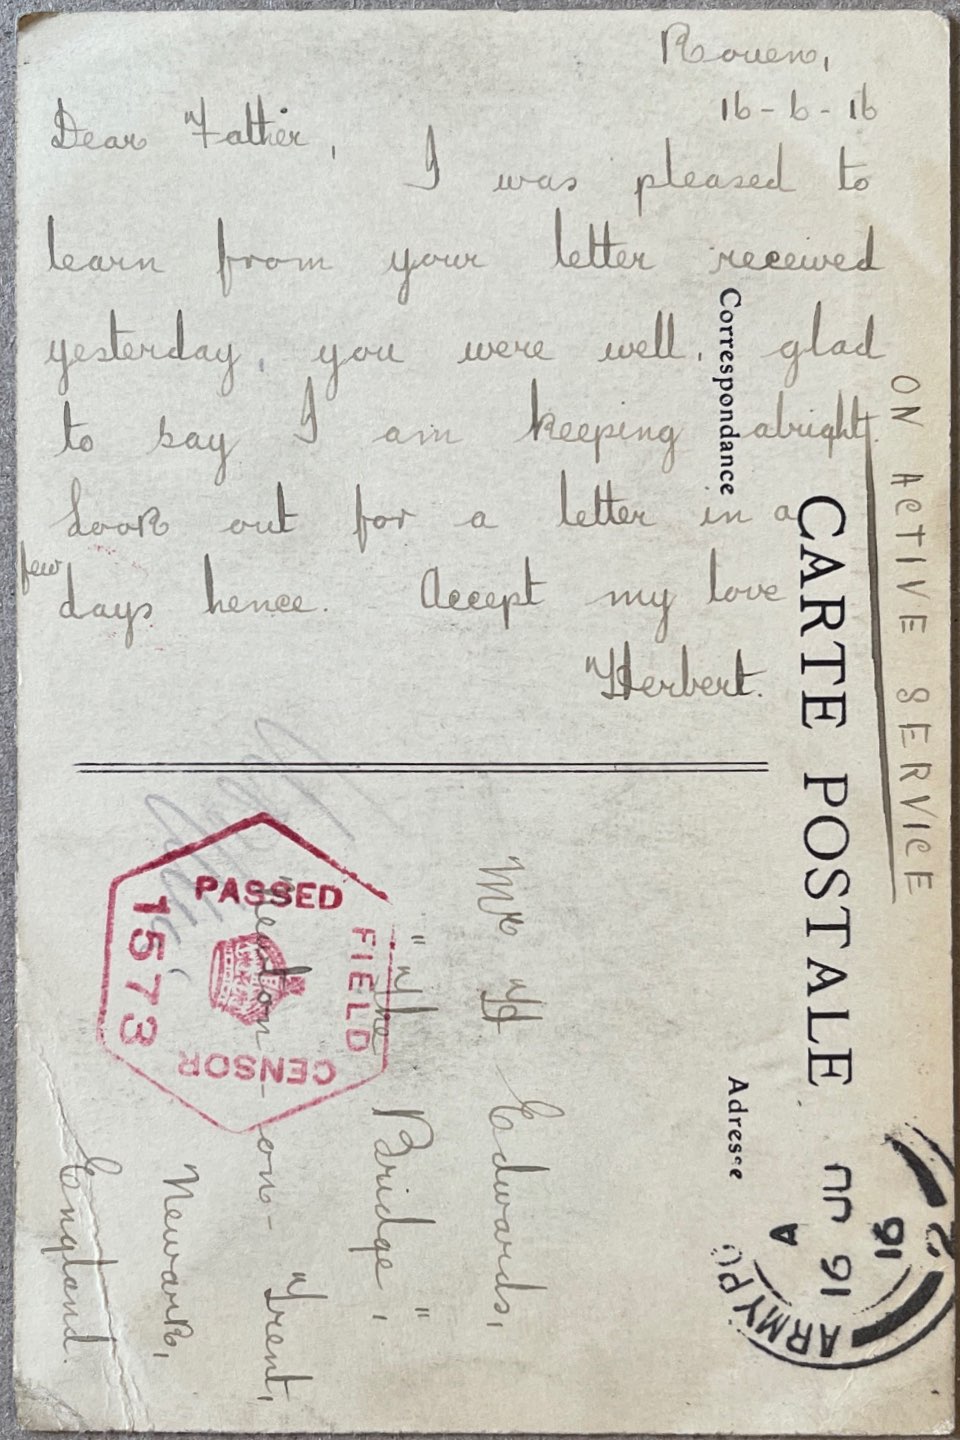 Rouen,
16-6-16
Dear Father,
I was pleased to
learn from your letter received
yesterday, you were well, glad
to say I am keeping alright.
Look out for a letter in a
few
days hence. Accept my love
Herbert.
ON ACTIVE SERVICE
CARTE POSTALE
Correspondance
Adresse
Mr H Edwards,
"The Bridge",
-on-Trent,
Newark,
England.
PASSED
FIELD
CENSOR
1573
ARMY PO
A
16 JU
16
2